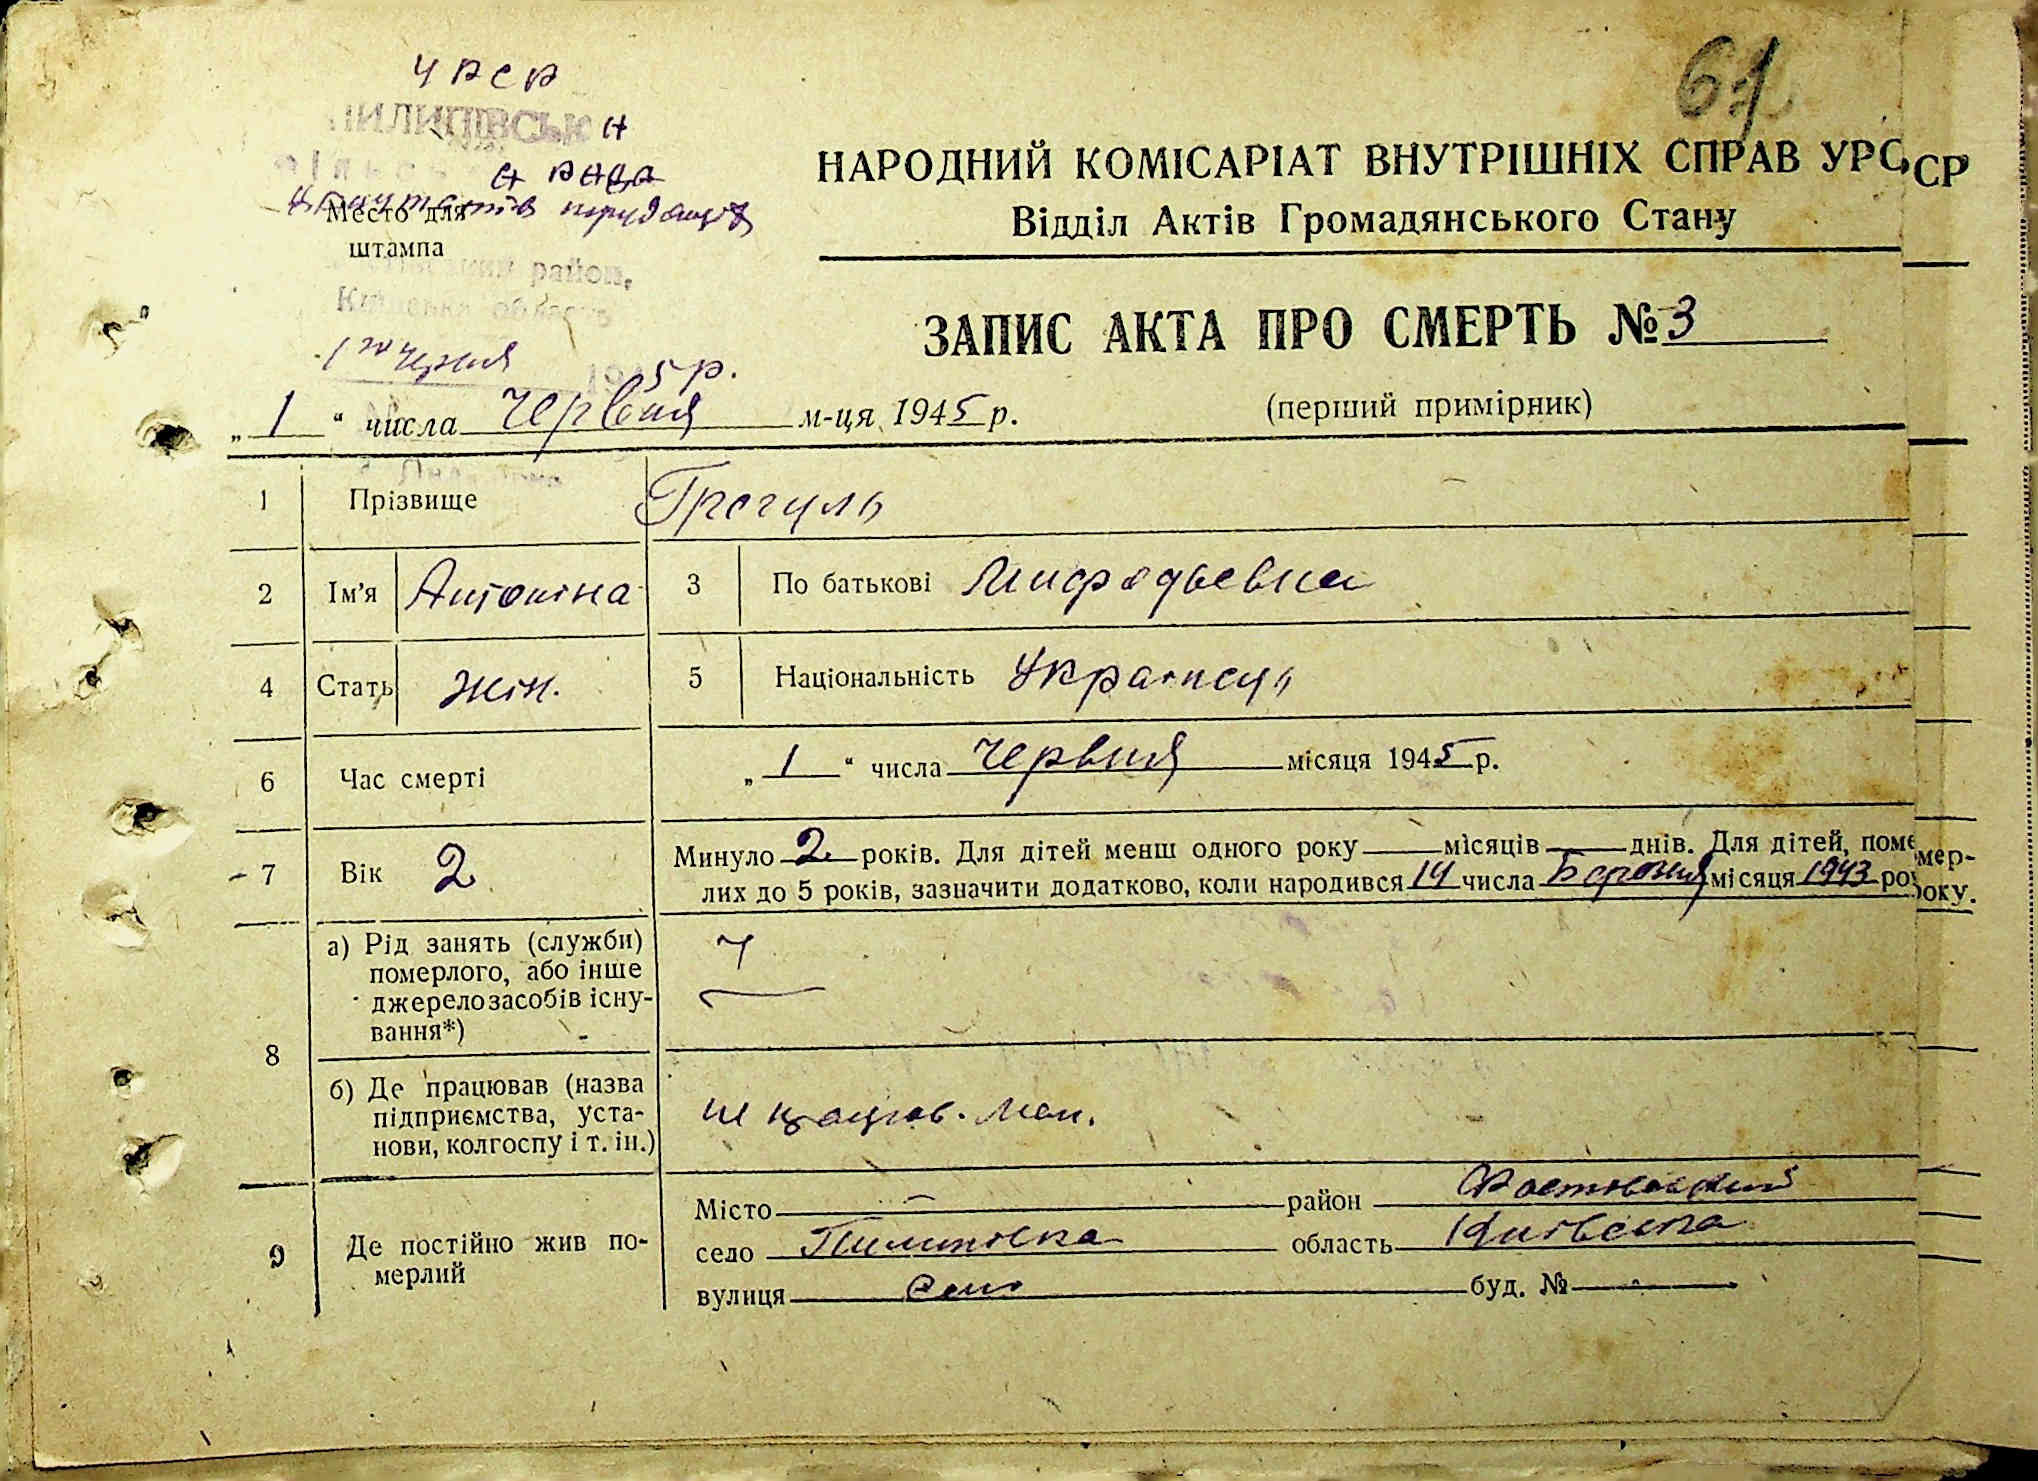 67
УРСР
ПИЛИПІВСЬКА
НАРОДНИЙ КОМІСАРІАТ ВНУТРІШНІХ СПРАВ УРСР
Відділ Актів Громадянського Стану
Место для
штампа
район,
Київська область
ЗАПИС АКТА ПРО СМЕРТЬ № 3
1 червня 1945 р.
„ 1 “ числа Червня м-ця 1945 р.
(перший примірник)
1 Прізвище Грегуль
2 Ім'я Антоніна 3 По батькові Мифодьевна
4 Стать жін. 5 Національність Украінець
6 Час смерті „ 1 “ числа Червня місяця 1945 р.
7 Вік 2 Минуло 2 років. Для дітей менш одного року місяців днів. Для дітей, помер-
лих до 5 років, зазначити додатково, коли народився 14 числа Березня місяця 1943 року.
8 а) Рід занять (служби)
померлого, або інше
джерело засобів існу-
вання*)
б) Де працював (назва
підприємства, уста-
нови, колгоспу і т. ін.)
9 Де постійно жив по-
мерлий
Місто — район Фастовский
село Пилиповка область Киівська
вулиця село буд. № -